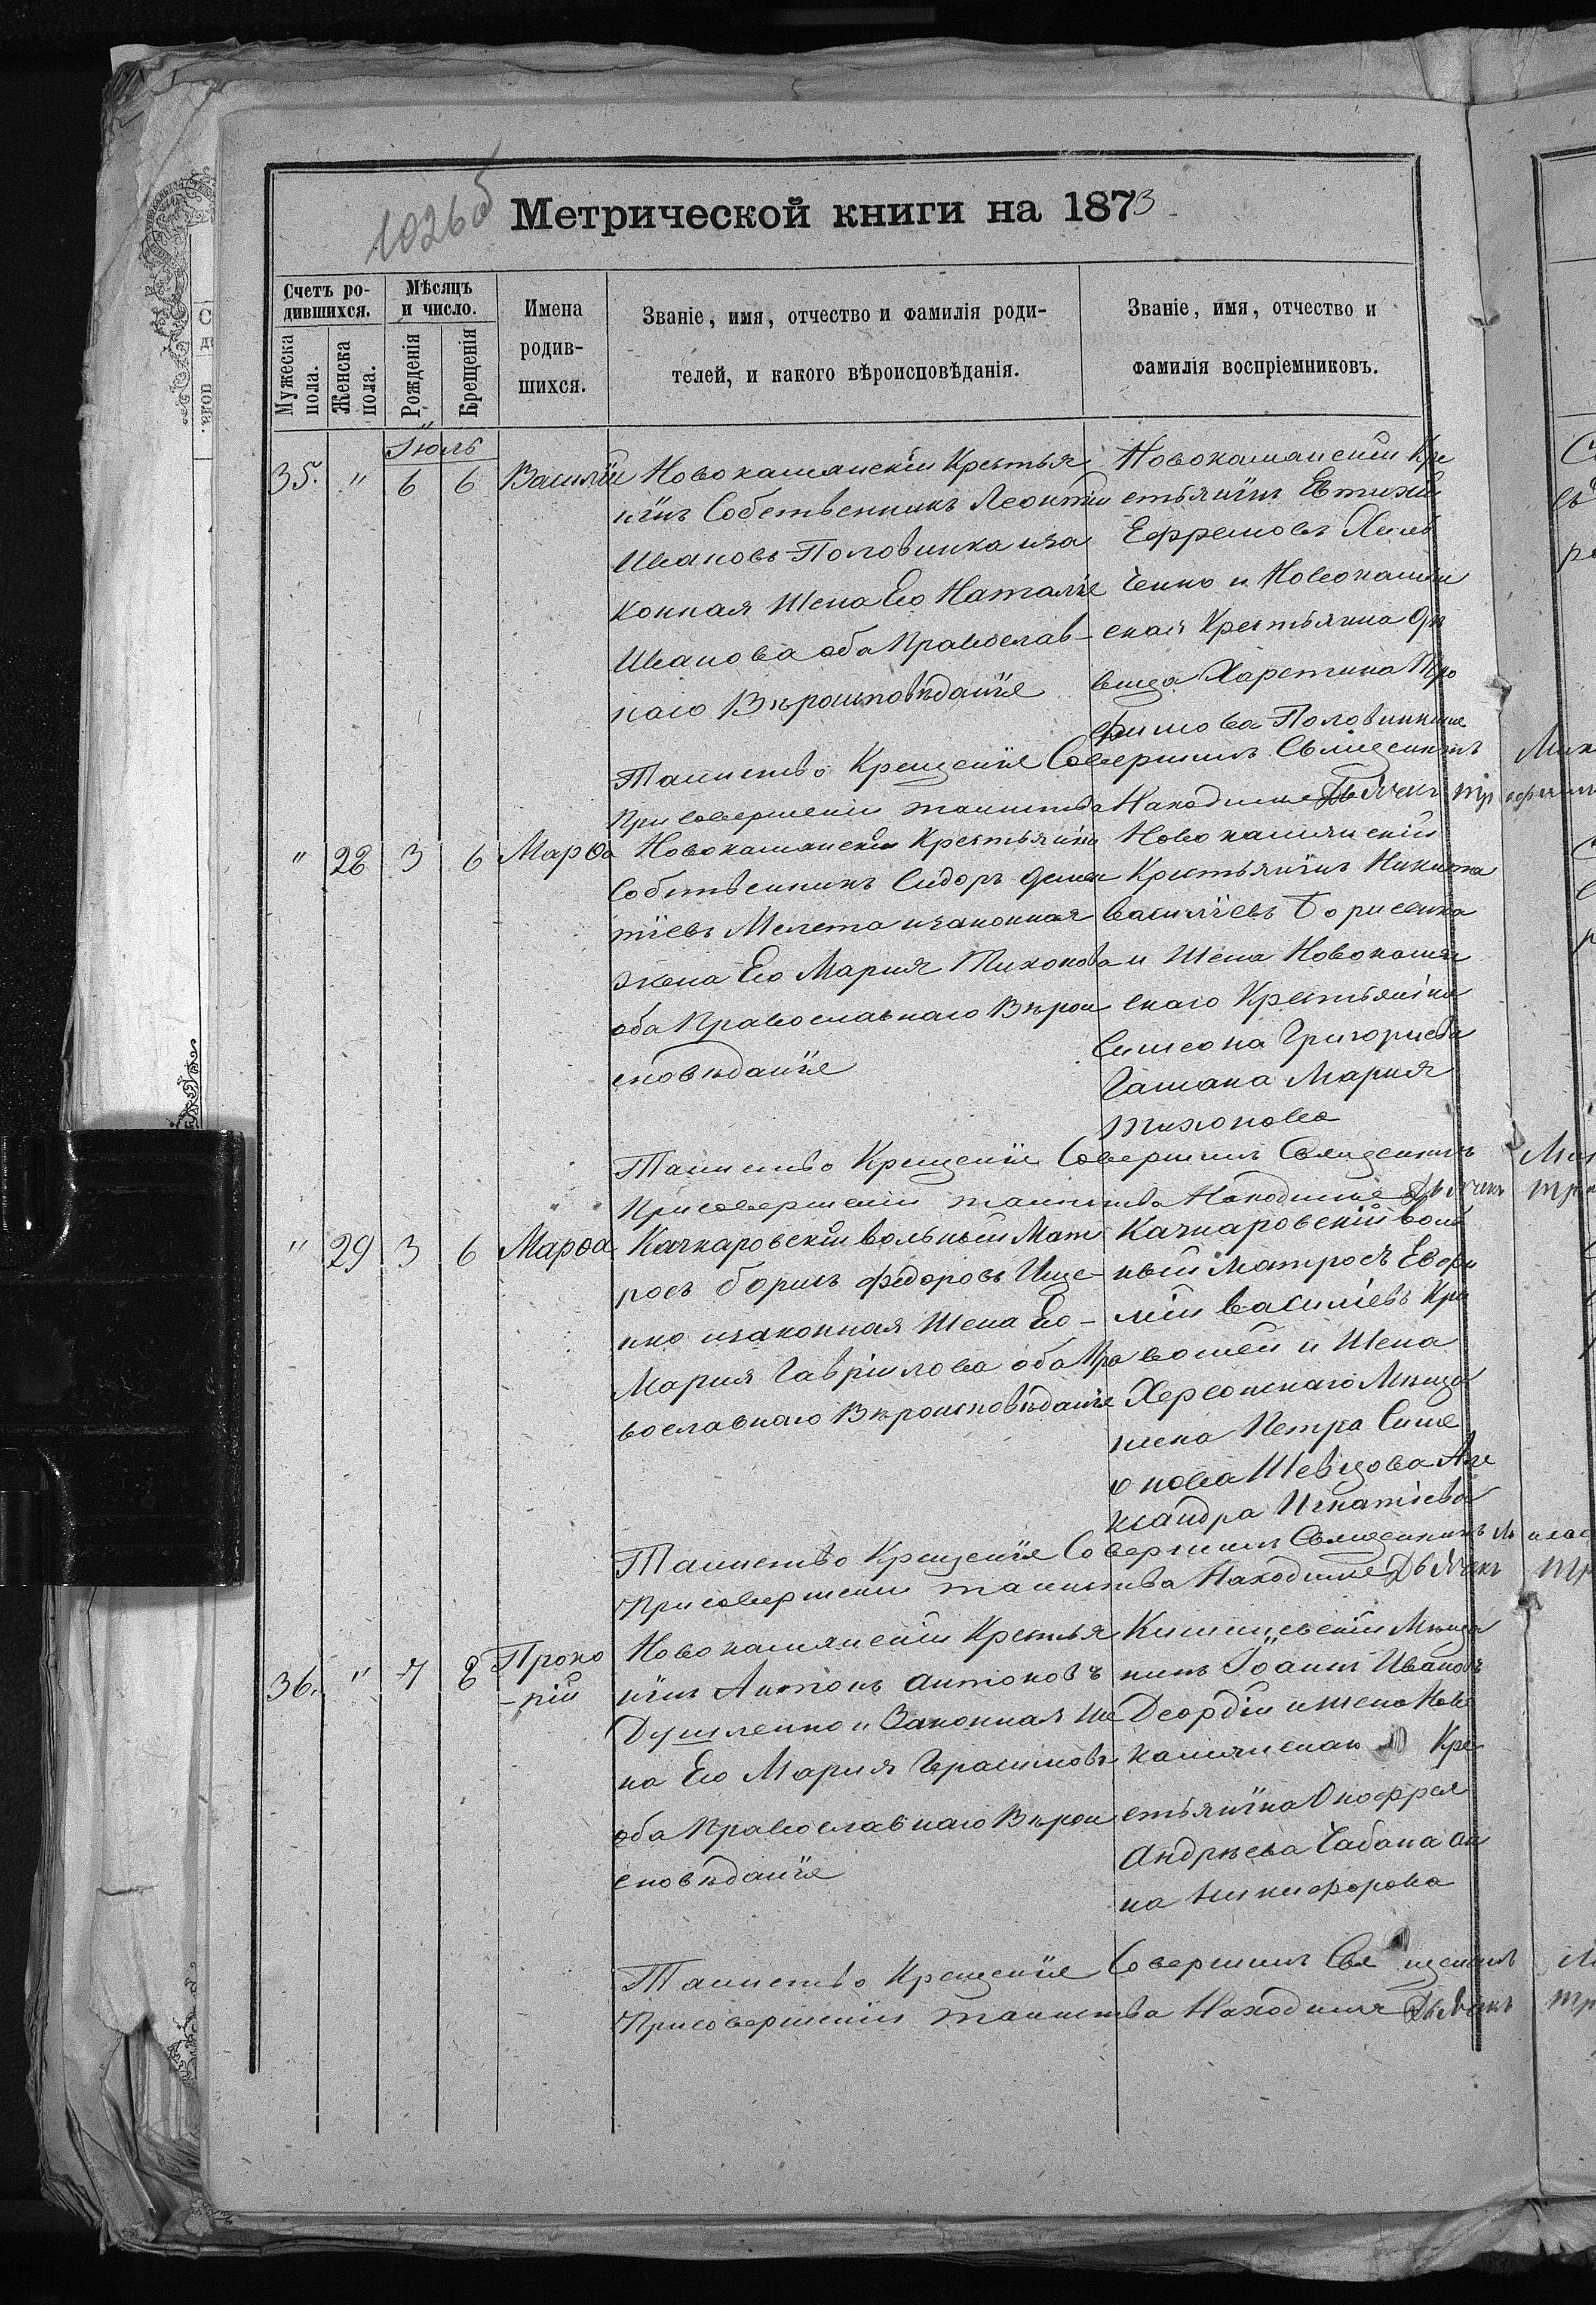 1026б
Метрической книги на 1873
Счетъ ро-
дившихся.
Мѣсяцъ
и число.
Имена
родив-
шихся.
Званіе, имя, отчество и фамилія роди-
телей, и какого вѣроисповѣданія.
Званіе, имя, отчество и
фамилія воспріемниковъ.
Мужеска
пола.
Женска
пола.
Рожденія
Крещенія
Іюль
35. " 6 6 Василій
Новокаменскій Крестья
нинъ Собственникъ Леонтій
Ивановъ Половинка иза
конная Жена Его Наталіе
Иванова оба Православ-
наго Вѣроисповѣданіе
Новокаменскій Кре
стьянинъ Евтихій
Ефремовъ
ченко и Новокамен
ская Крестьянка
вица Харетина Тро
фимова Половинкина
Таинство Крещеніе Совершилъ Священникъ
При совершеніи таинства Находился Дьячекъ
" 28 3 6 Марѳа
Новокаменскій Крестьянинъ
Собственникъ Сидоръ Демен
тіевъ Мелета изаконная
жена Его Мария Тихонова
оба Православнаго Вѣрои
сповѣданіе
Новокаменскій
Крестьянинъ Никита
Василіевъ Борисенко
и Жена Новокамен
скаго Крестьянина
Симеона Григориева
Гамана Мария
Тихонова
Таинство Крещеніе Совершилъ Священникъ
При совершеніи таинства Находился Дьячекъ
" 29 3 6 Марѳа
Качкаровскій вольный Мат
росъ Борисъ Федоровъ Ище-
нко изаконная Жена Его -
Мария Гавріилова оба Пра
вославнаго Вѣроисповѣданіе
Качкаровскій воль
ный Матросъ Евфи
мій Василіевъ Кри
вошей и Жена
Херсонскаго Мѣща
нина Петра Симе
онова Шевцова Але
ксандра Игнатіева
Таинство Крещеніе Совершилъ Священникъ
При совершеніи таинства Находился Дьячекъ
36. " 7 8 Проко
-пій
Новокаменскій Крестья
нинъ Антонъ Антоновъ
Душленко и Законная Же
на Его Мария Герасимова
оба Православнаго Вѣрои
сповѣданіе
Кишиневскій Мѣща
нинъ Іоанъ Ивановъ
Деордій и жена Ново
каменскаго Кре
стьянина Онофрея
Андрѣева Чабана Ан
на Никифорова
Таинство Крещеніе Совершилъ Священникъ
При совершеніи таинства Находился Дьячекъ